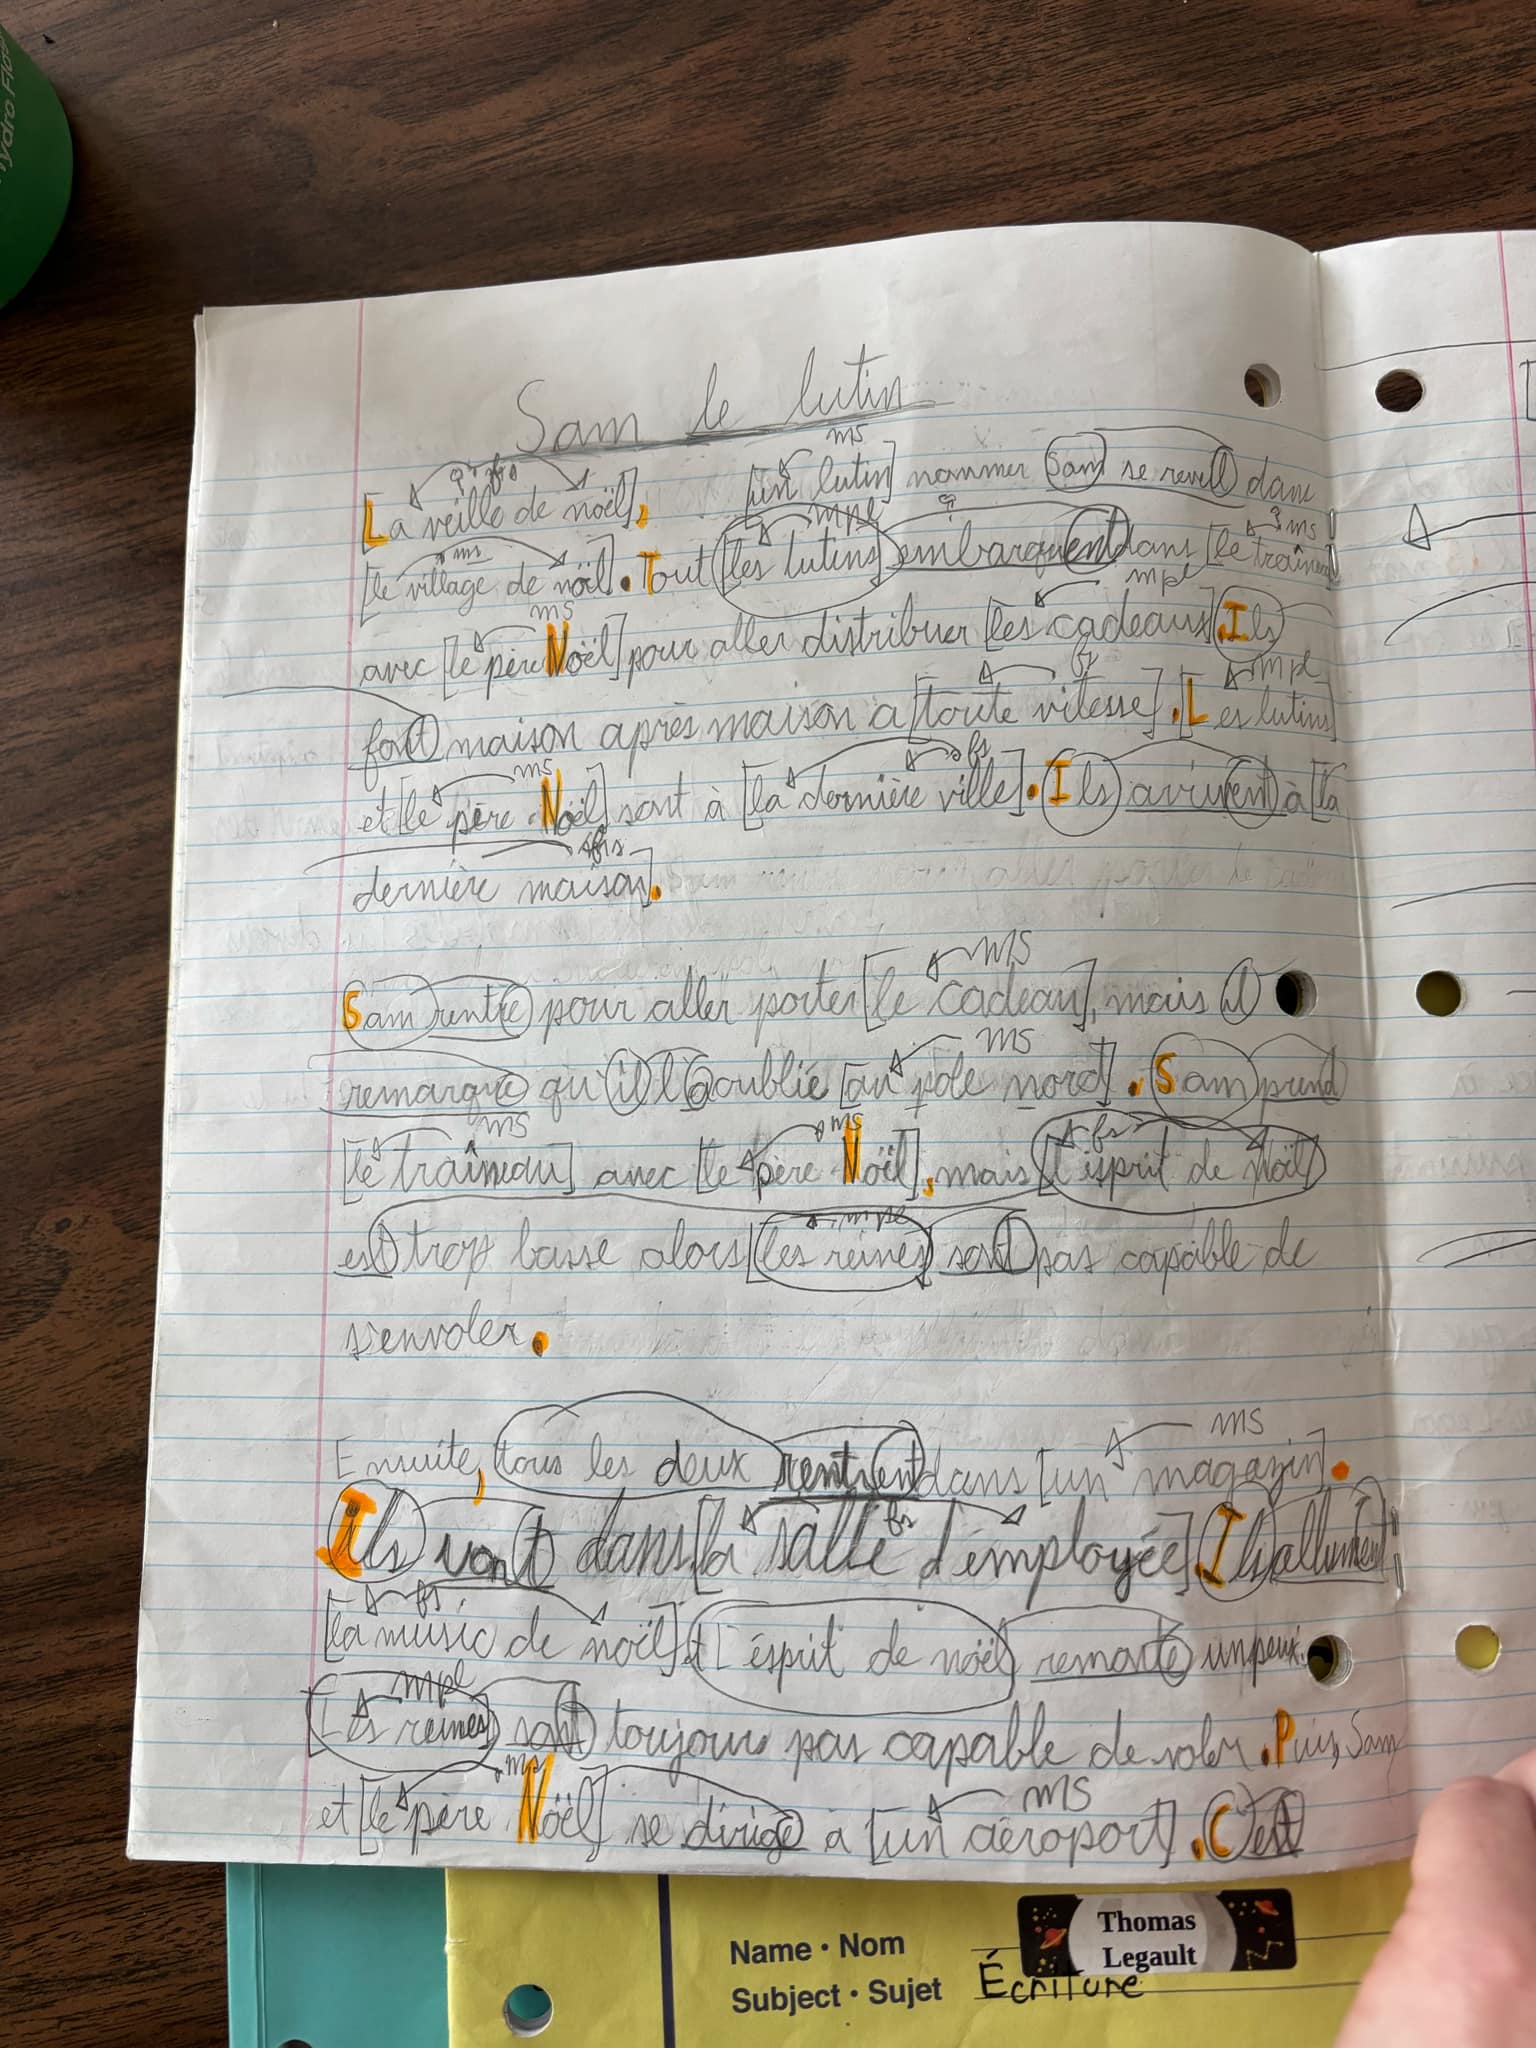 Hydro Flas
Sam le lutin
ms
q. fs
[La veille de noël], [un lutin] nommer Sam se reveil dans
ms mpl ms
[le village de noël]. Tout [les lutins] embarquent dans [le traîneau]
ms mpl
avec [le père Noël] pour aller distribuer [les cadeaux]. Ils
fs mpl
font maison après maison a [toute vitesse]. [Les lutins]
ms fs
et [le père Noël] sont à [la dernière ville]. Ils arivent à [la
fs
dernière maison].
ms
Sam rentre pour aller porter [le cadeau], mais il
ms
remarque qu'il l'a oublié [au pôle nord]. Sam prend
ms ms fs
[le traîneau] avec [le père Noël], mais [l'esprit de Noël]
mpl
est trop basse alors [les reines] sont pas capable de
s'envoler.
ms
Ensuite, tous les deux rentrent dans [un magazin].
fs
Ils vont dans [la salle d'employée]. Ils allument
fs
[la music de noël] et [l'ésprit de noël remonte un peux.
mpl
[Les reines] sont toujours pas capable de voler. Puis, Sam
ms ms
et [le père Noël] se dirige à [un aéroport]. C'est
Name • Nom
Thomas
Legault
Subject • Sujet Écriture